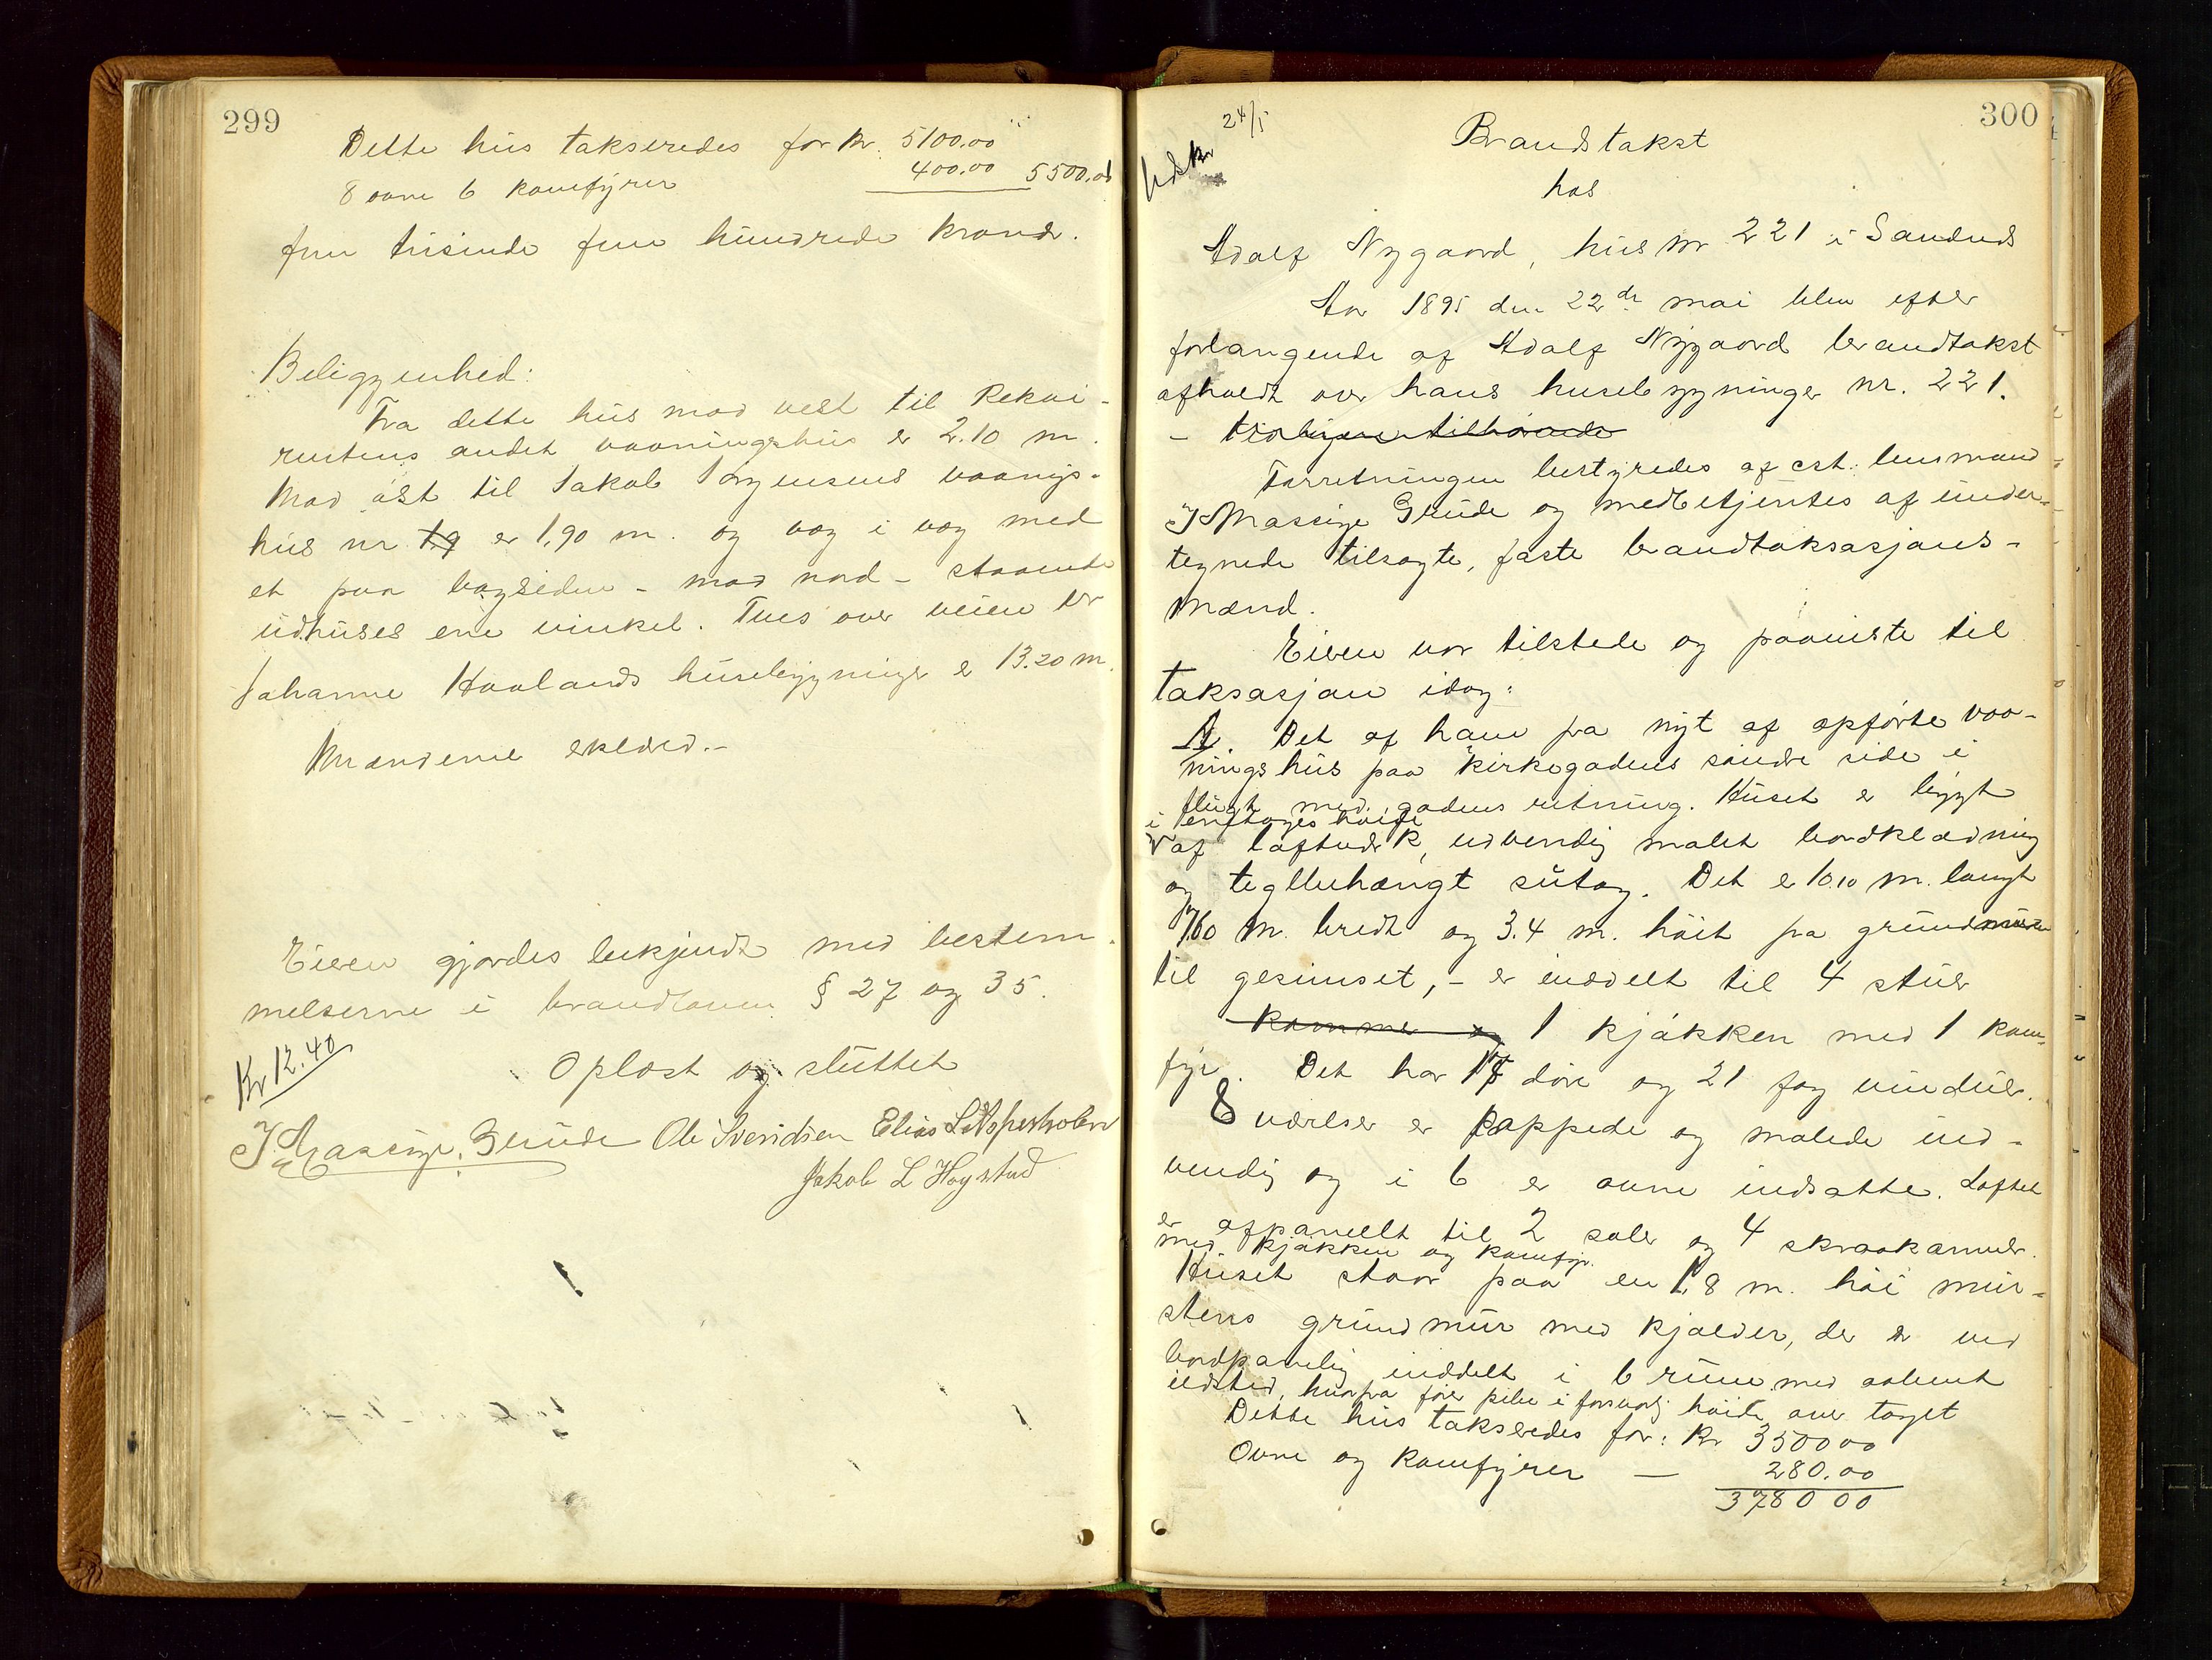 299
Dette hus takseredes for Kr. 5100.00
8 ovne 6 komfyrer 400.00 5500.00
fem tusinde fem hundrede kroner.
Beliggenhed:
Fra dette hus mod vest til Rekvi-
rentens andet vaaningshus er 2.10 m.
Mod øst til Jakob Jørgensens vaanings-
hus nr 19 er 1,90 m. og væg i væg med
et paa bagsiden - mod nord - staaende
udhuses ene vinkel. Tvers over veien til
Johanne Haalands husebygninger er 13.20 m.
Mændene
Eieren gjordes bekjendt med bestem-
melserne i brandloven § 27 og 35.
Kr 12.40
Oplæst og sluttet
J Massige Grude Ole Sveridsen Elias L
Jakob L Høgstad
300
24/5
Udskr
Brandtakst
hos
Adolf Nygaard, hus nr 221 i Sandnes
Aar 1895 den 22de mai blev efter
forlangende af Adolf Nygaard brandtakst
afholdt over hans husebygninger nr. 221.
- tilhørende
Forretningen bestyredes af cst. lensmand
J Massige Grude og medbetjentes af under-
tegnede tilsagte, faste brandtaksasjons-
mænd.
Eieren var tilstede og paaviste til
taksasjon idag:
A. Det af ham fra nyt af opførte vaa-
ningshus paa kirkegadens søndre side i
flugt med gadens retning. Huset er bygt
i en etages høide
af laftverk, udvendig malet bordklædning
og teglbehængt sutag. Det er 10.10 m. langt
7.60 m. bredt og 3.4 m. høit fra grundmuren
til gesimset, - er inddelt til 4 stuer
kammer og 1 kjøkken med 1 kom-
fyr. Det har 17 døre og 21 fag vinduer.
8 værelser er pappede og malede ind-
vendig og i 6 er ovne indsatte. Loftet
er afpanellt til 2 saler og 4 skraakammer.
med kjøkken og komfyr.
Huset staar paa en 1,8 m. høi mur-
stens grundmur med kjælder, der er ved
bordpaneling inddelt i 6 rum med aabent
ildsted, hvorfra fører pibe i forsvarlig høide over taget
Dette hus takseredes for: Kr 3500 00
Ovne og komfyrer — 280.00
3780 00